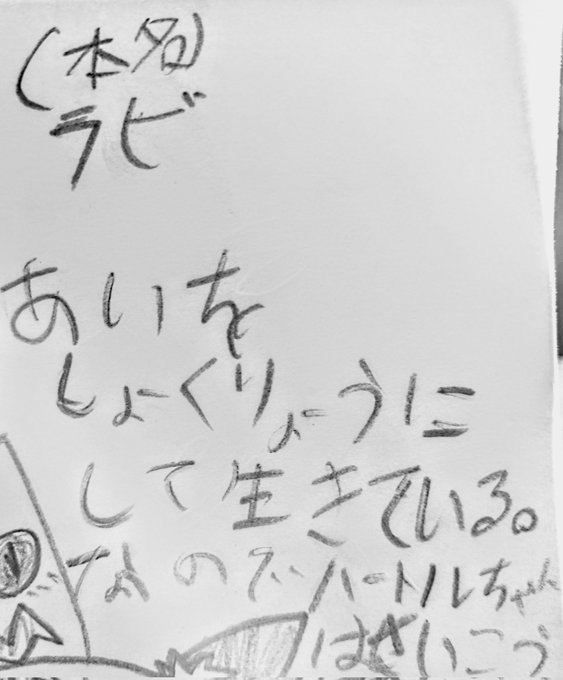 (本名)
ラビ
あいを
しょくりょうに
して生きている。
なのでハートルちゃん
はさいこう